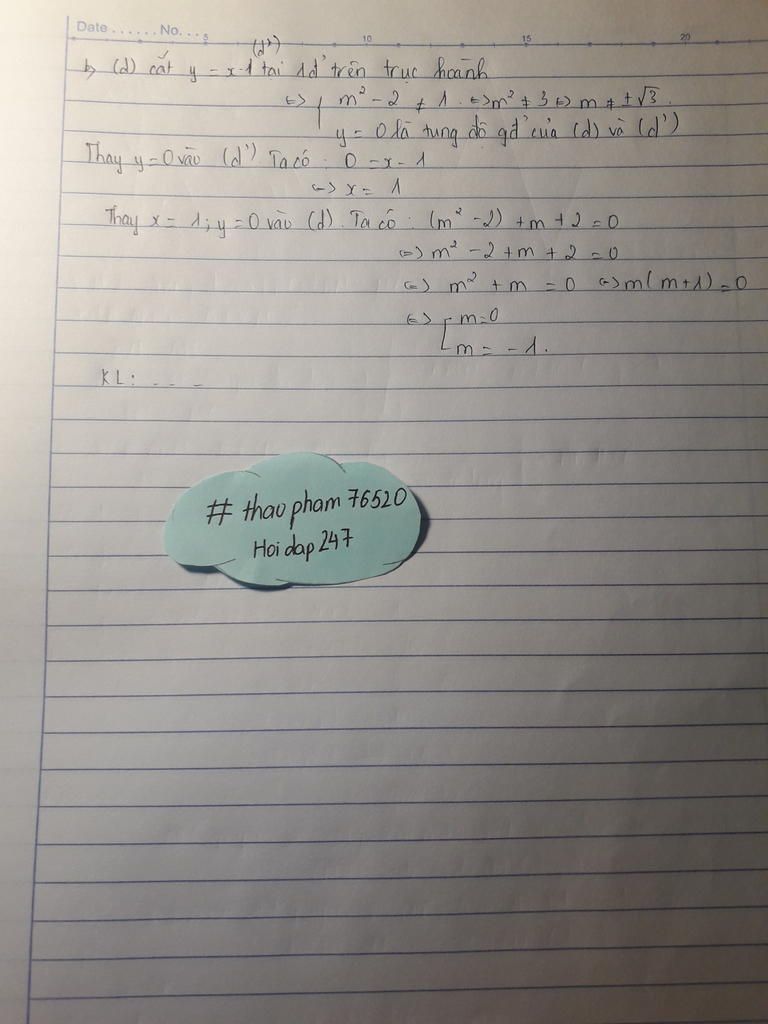 Date ...... No. ... 5 10 15 20
(d')
b, (d) cắt y = x-1 tại 1đ' trên trục hoành
<=> { m² - 2 ≠ 1 <=> m² ≠ 3 <=> m ≠ ±√3.
y = 0 là tung độ gđ' của (d) và (d')
Thay y = 0 vào (d') Ta có: 0 = x - 1
<=> x = 1
Thay x = 1; y = 0 vào (d). Ta có: (m² - 2) + m + 2 = 0
<=> m² - 2 + m + 2 = 0
<=> m² + m = 0 <=> m(m+1) = 0
<=> [ m = 0
m = -1.
KL: - - -
# thao pham 76520
Hoi dap 247